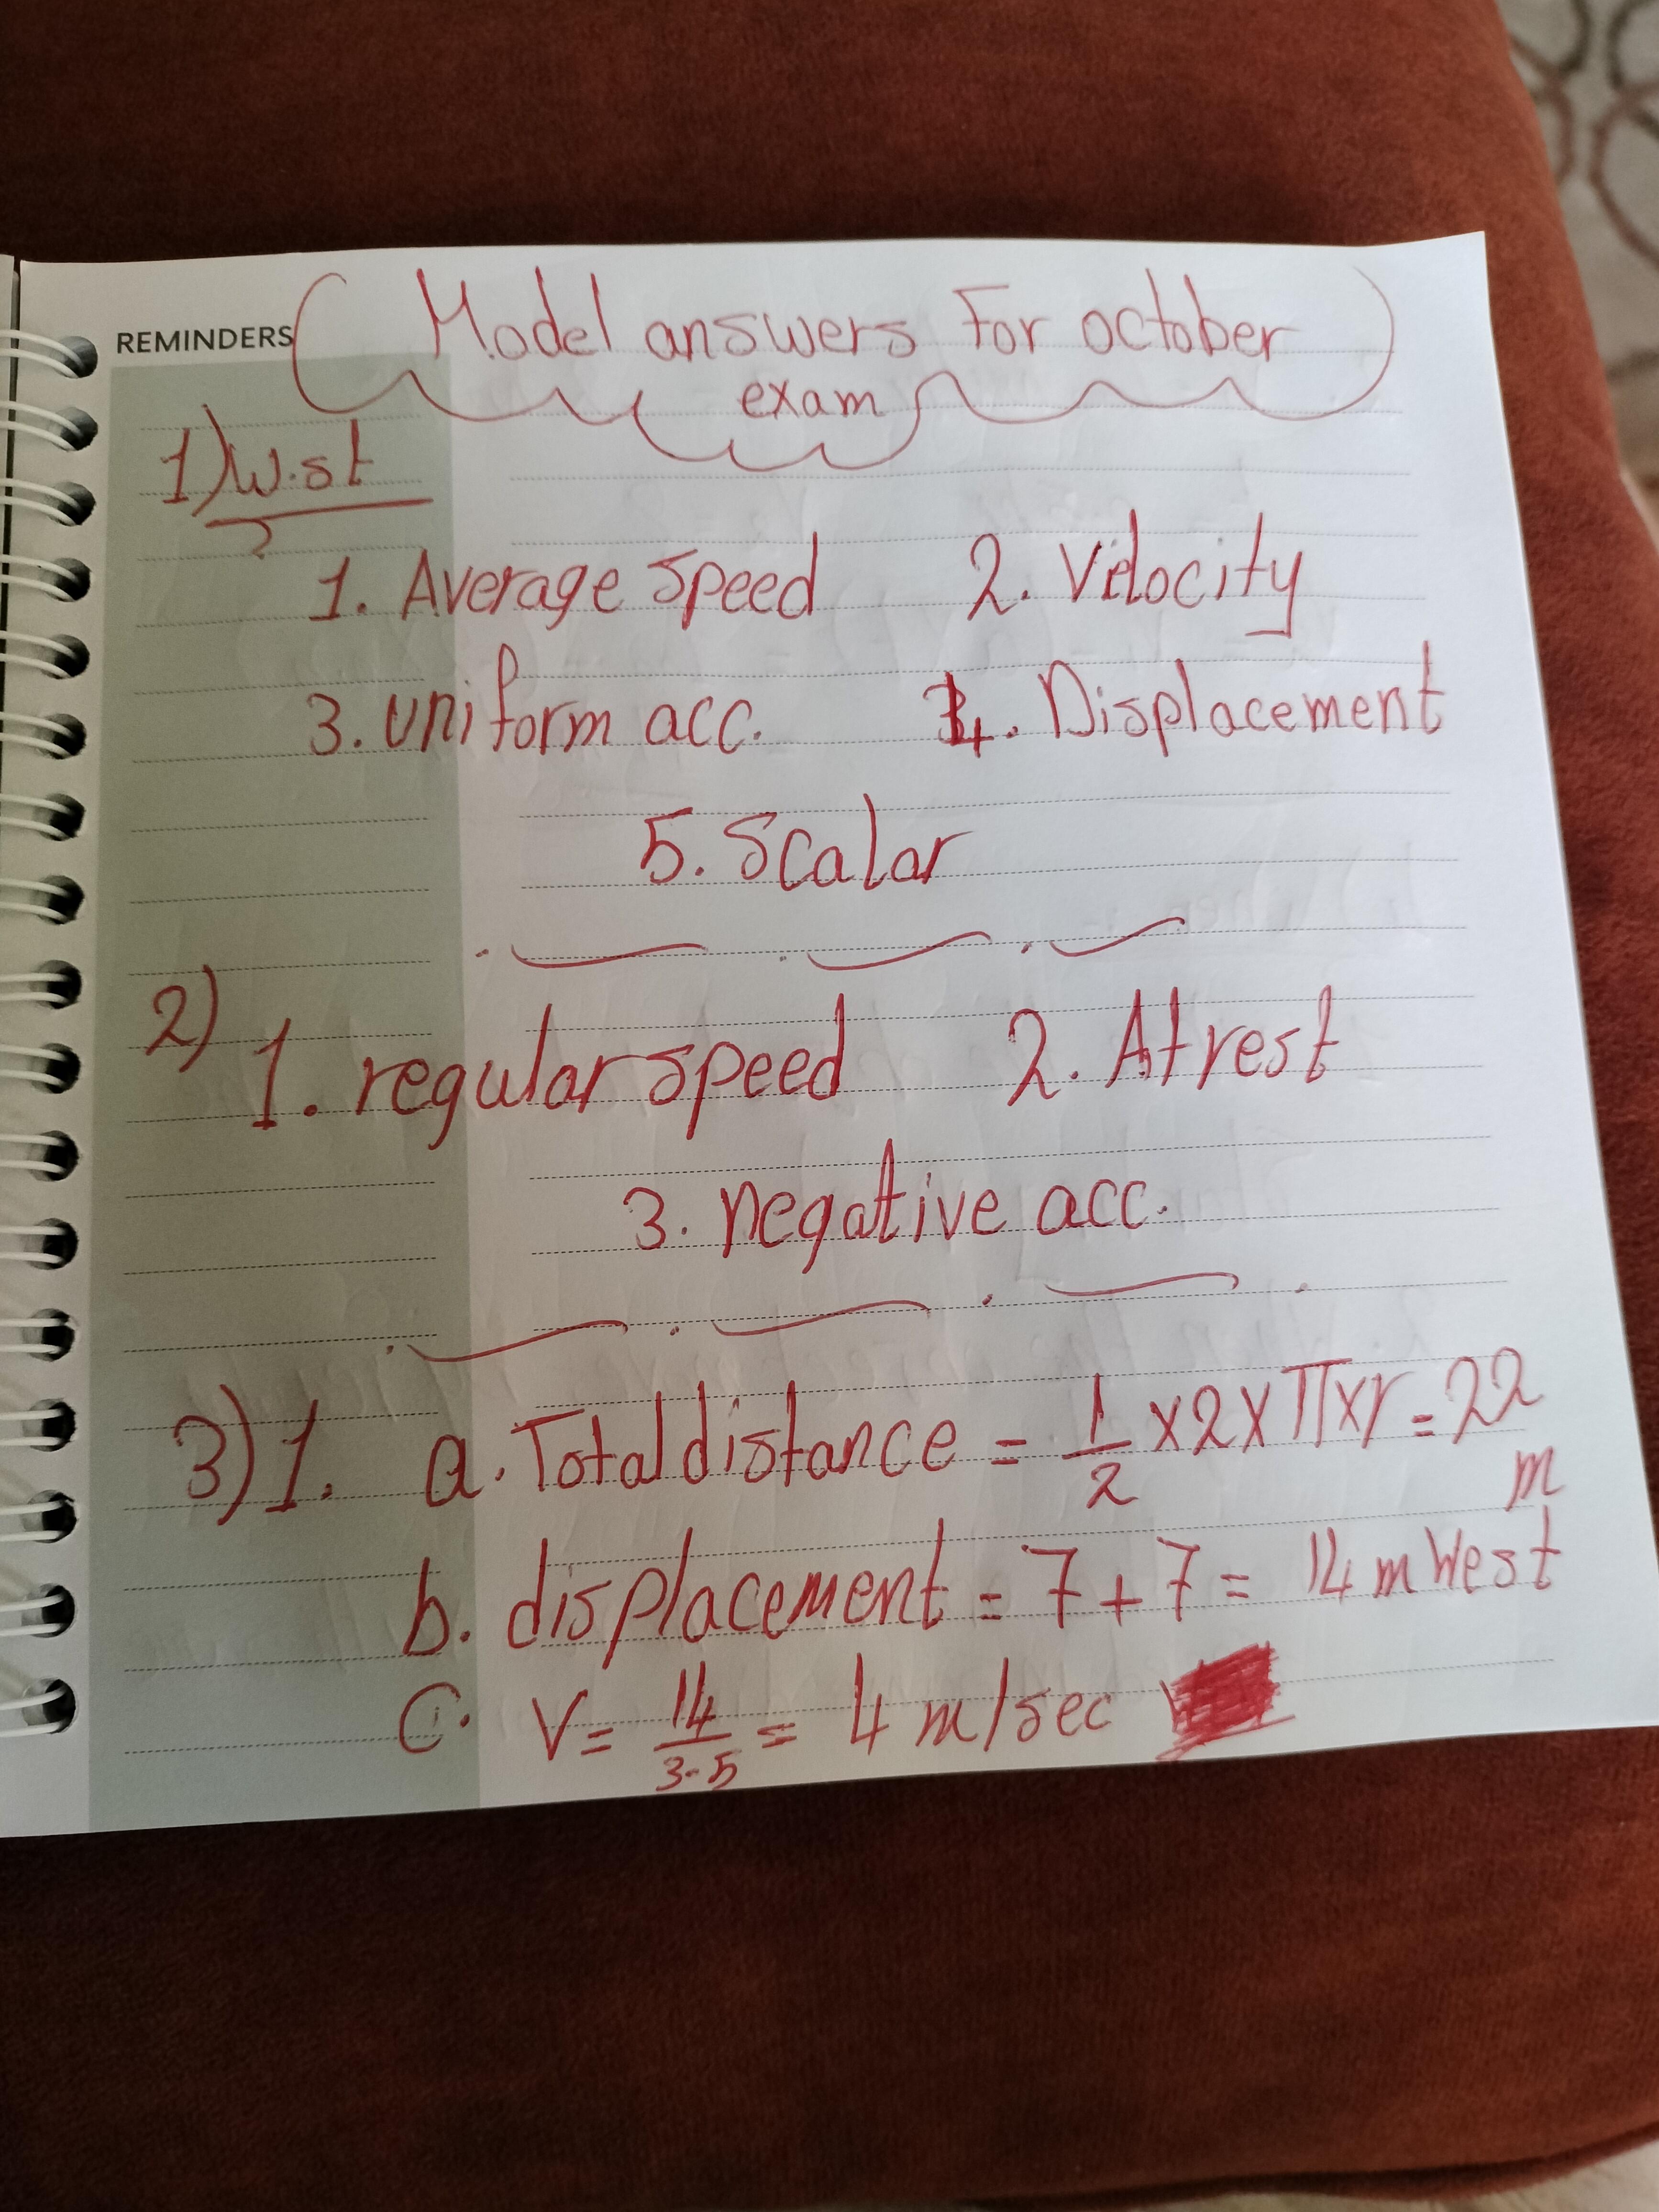 REMINDERS
Model answers For october
exam
1) W.st
1. Average speed 2. Velocity
3. uniform acc. 4. Displacement
5. Scalar
2) 1. regular speed 2. At rest
3. negative acc.
3) 1. a. Total distance = 1/2 x 2 x π x r = 22 m
b. displacement = 7 + 7 = 14 m West
C. V = 14/3.5 = 4 m/sec